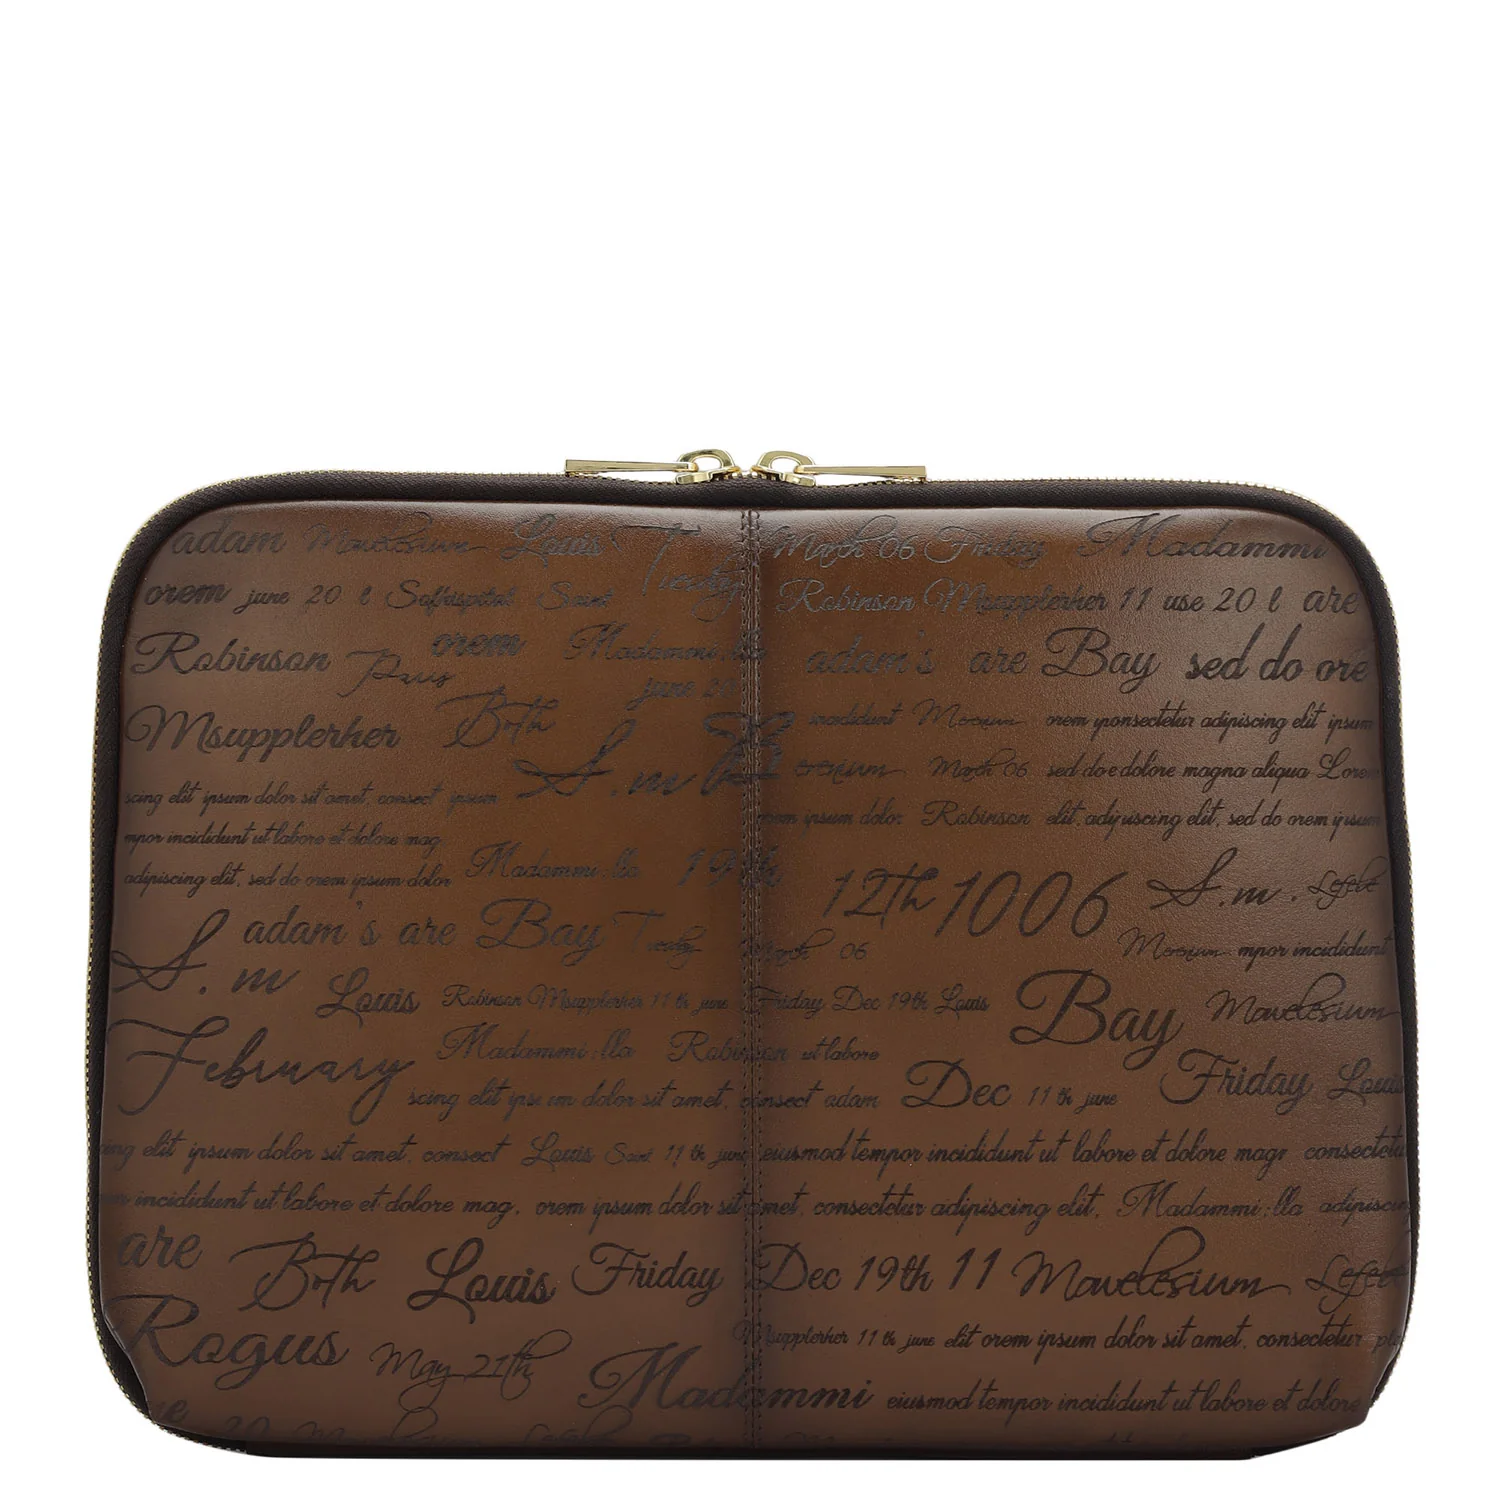 adam Mavelesium Louis Tuesday March 06 Friday Madammi
orem june 20 l Safhispital Saint Robinson Msupplerher 11 use 20 l are
Robinson Paris orem Madammi:lla adam's are Bay sed do ore
june 20
Msupplerher Both S.m B incididunt orem ponsectetur adipiscing elit ipsum
March 06 sed do e dolore magna aliqua Lorem
scing elit ipsum dolor sit amet, consect ipsum
orem ipsum dolor Robinson elit, adipiscing elit, sed do orem ipsum
mpor incididunt ut labore et dolore mag
adipiscing elit, sed do orem ipsum dolor Madammi:lla 12th 1006 S.m. Lefebe
adam's are Bay Tuesday March 06 mpor incididunt
S.m Louis Robinson Msupplerher 11 th june Friday Dec 19th Louis Bay Mavelesium
February Madammi:lla Robinson ut labore
scing elit ipsum dolor sit amet, consect adam Dec 11 th june Friday Louis
ing elit ipsum dolor sit amet, consect Louis Saint 11 th june eiusmod tempor incididunt ut labore et dolore magr consectetu
incididunt ut labore et dolore mag, orem ipsum dolor sit amet, consectetur adipiscing elit, Madammi:lla adipiscing
are Both Louis Friday Dec 19th 11 Mavelesium Lefebe
Rogus May 21th Msupplerher 11 th june elit orem ipsum dolor sit amet, consectetur
Madammi eiusmod tempor incididunt ut labore et dolore
20